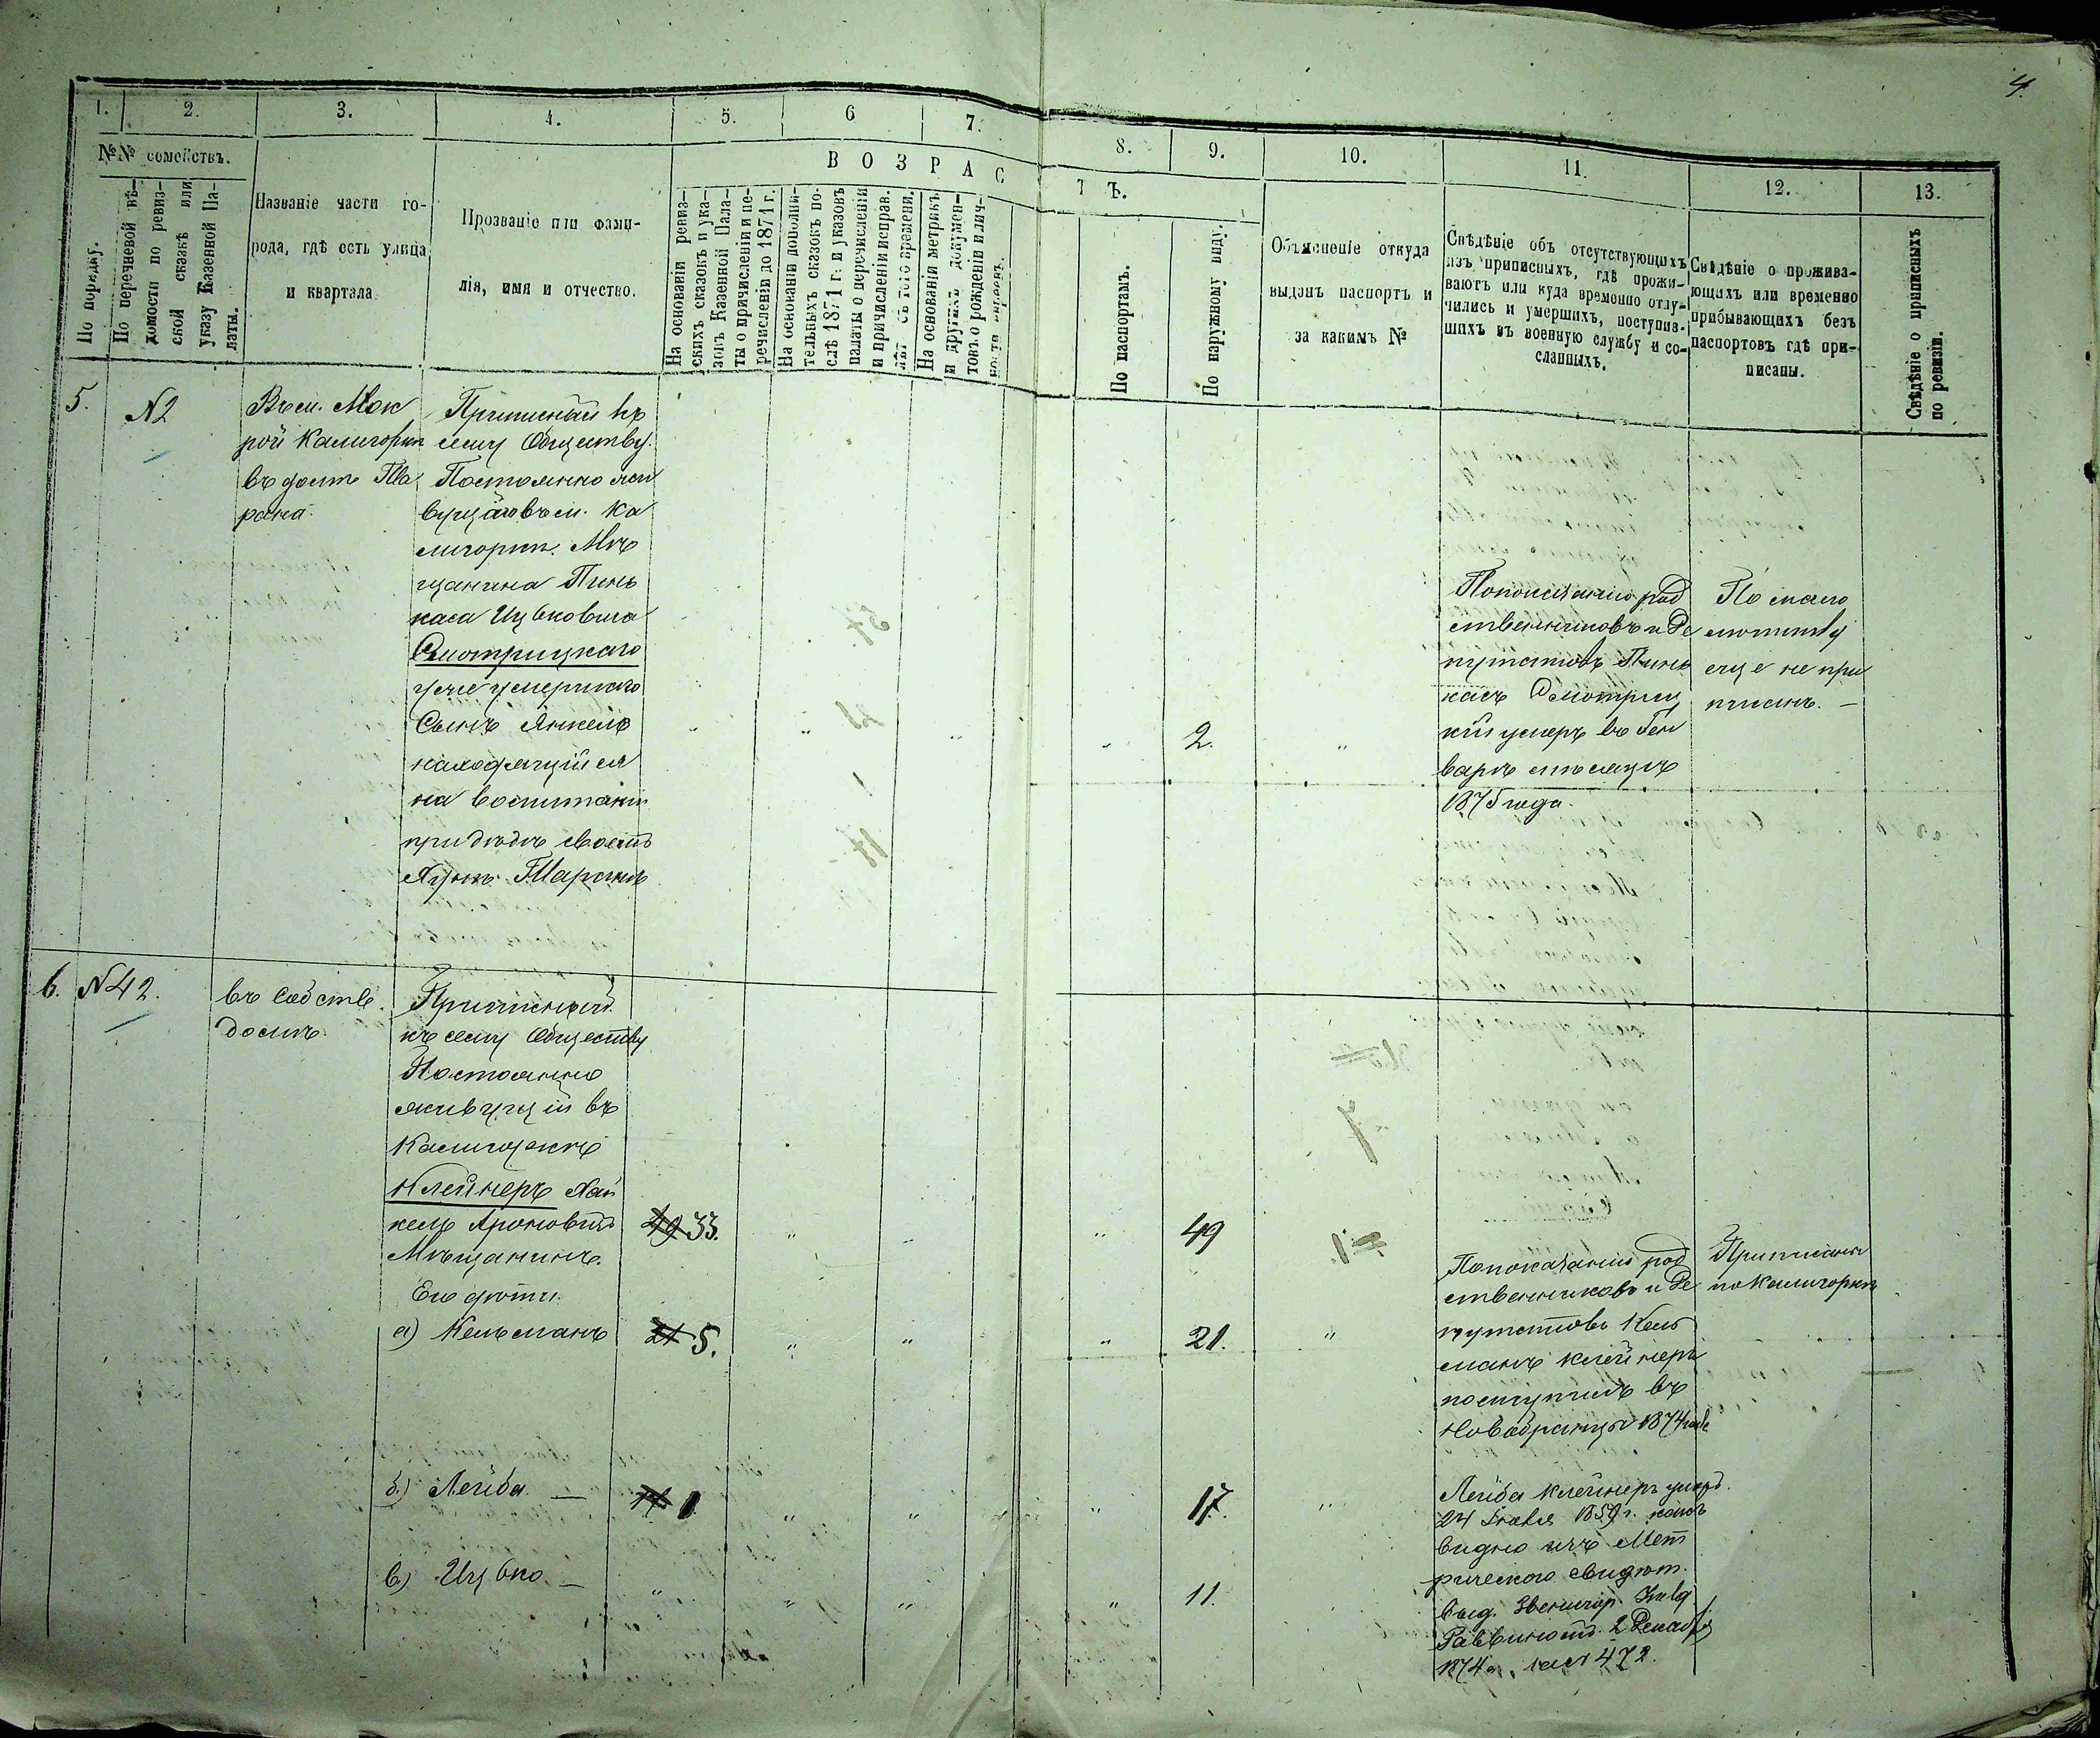 4.
1.
2.
3.
4.
5.
6
7.
8.
9.
10.
11.
12.
13.
№№ семействъ.
По порядку.
По перечневой вѣ-
домости по ревиз-
ской сказкѣ или
указу Казенной Па-
латы.
Названіе части го-
рода, гдѣ есть улица
и квартала.
Прозваніе или фами-
лія, имя и отчество.
ВОЗРАС
ТЪ.
На основаніи ревиз-
скихъ сказокъ и ука-
зовъ Казенной Пала-
ты о причисленіи и пе-
речисленіи до 1871 г.
На основаніи дополни-
тельныхъ сказокъ по-
слѣ 1871 г. и указовъ
палаты о перечисленіи
и причисленіи исправ.
лѣт съ того времени.
На основаніи метрикъ
и другихъ докумен-
товъ о рожденіи и лич-
По паспортамъ.
По наружному виду.
Объясненіе откуда
выданъ паспортъ и
за какимъ №
Свѣдѣніе объ отсутствующихъ
изъ приписныхъ, гдѣ прожи-
ваютъ или куда временно отлу-
чились и умершихъ, поступив-
шихъ въ военную службу и со-
сланныхъ.
Свѣдѣніе о прожива-
ющихъ или временно
прибывающихъ безъ
паспортовъ гдѣ при-
писаны.
Свѣдѣніе о приписныхъ
по ревизіи.
5.
№2
Въ м. Мок
рой Калигорки
въ домѣ Та
рана.
Приписный къ
сему Обществу.
Постоянно жи
вущаго въ м. Ка
лигорки. Мѣ
щанина Пинь
каса Ицковича
Смотрицкаго
уже умершаго
Сынъ Янкель
находящійся
на воспитаніи
при дѣдѣ своемъ
2.
Попоказанію род
ственниковъ и Де
путатовъ Пинь
касъ Смотриц
кій умеръ въ Ген
варѣ мѣсяцѣ
1875 года.
По мало
лютству
еще не при
писанъ. —
6.
№42.
въ собств.
домѣ.
Приписный
къ сему Обществу
Постоянно
живущій въ
Калигоркѣ
Клейнеръ Хай
кель Ароновичъ
Мѣщанинъ.
Его дѣти.
49 33.
49
а) Кельманъ
21 5.
21.
Попоказанію род
ственниковъ и Де
путатовъ Кель
манъ Клейнеръ
поступилъ въ
Новобранцы 1874 года
Приписаны
по Калигорки
б.) Лейба —
17.
Лейба Клейнеръ умеръ
24 1859 г. какъ
видно изъ Мет
рическаго свидѣт.
выд. Звенигор.
Раввиномъ 2 Декабря
1874 г. за № 472.
в.) Ицко —
11.